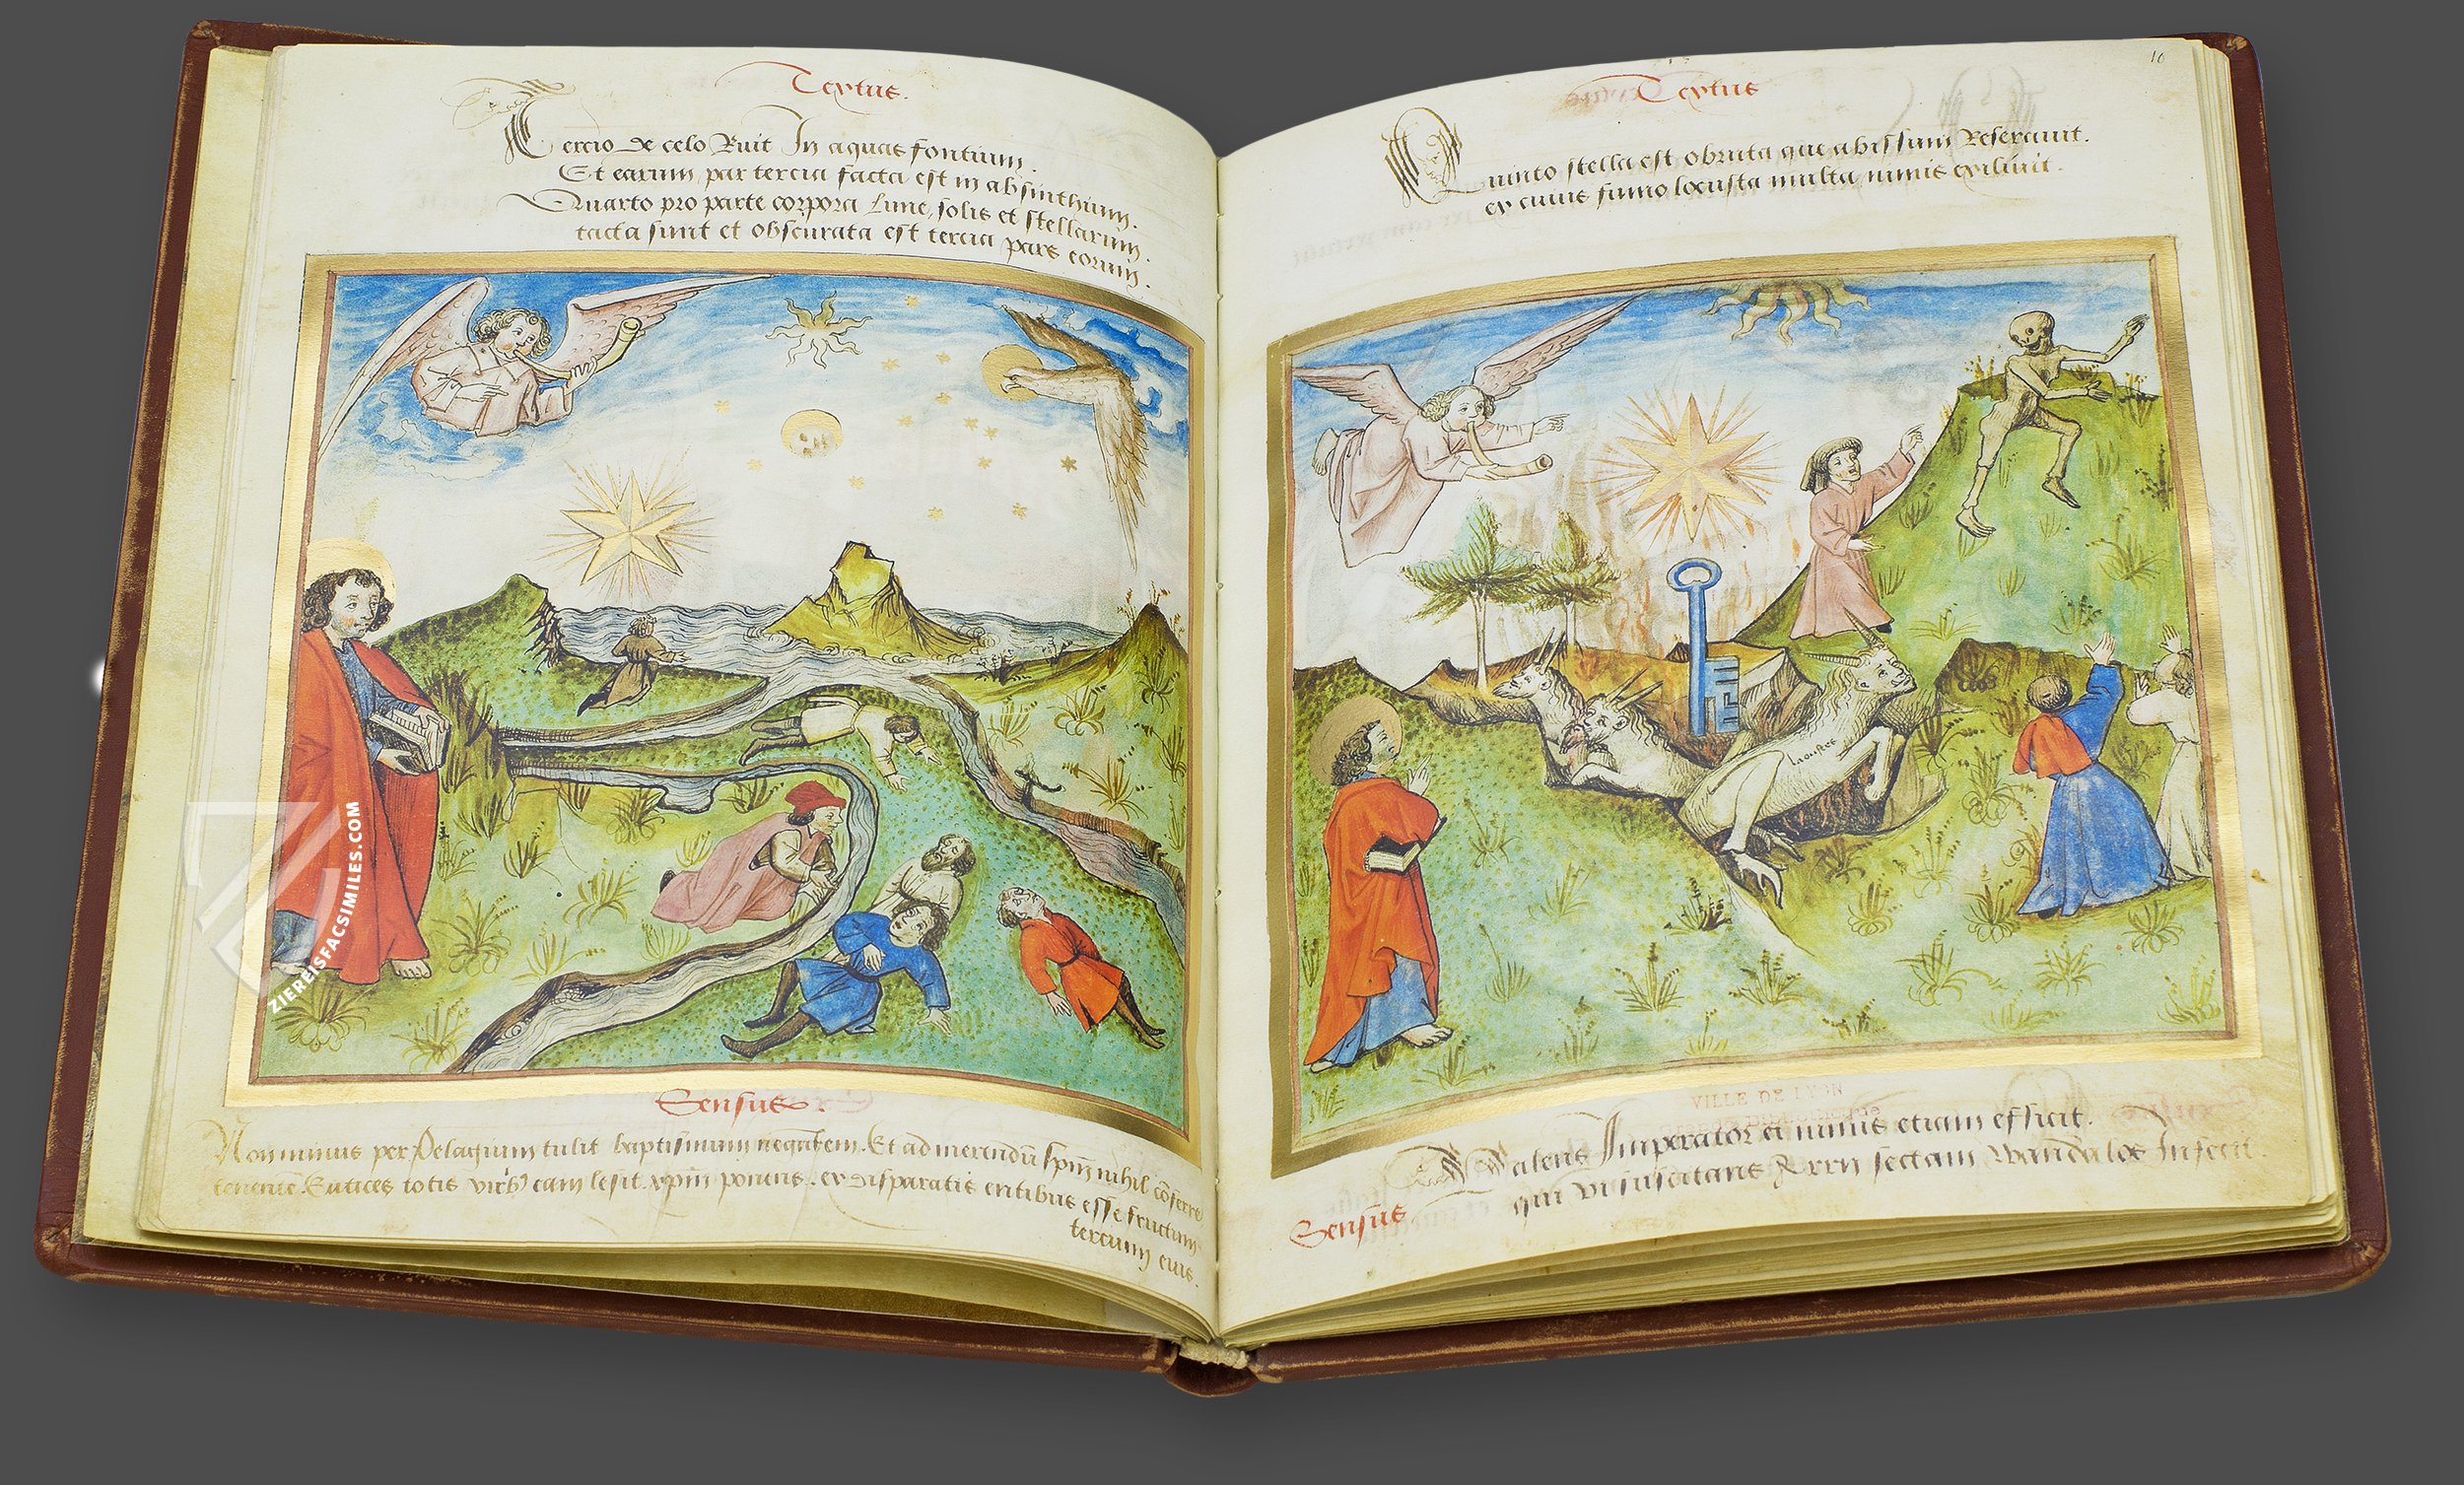 Textus.
Tercio de celo Ruit In aquas fontium.
Et earum par tercia facta est in absinthium.
Quarto pro parte corpora Lune, solis et stellarum.
tacta sunt et obscurata est tercia pars eorum.
ZIEREISFACSIMILES.COM
Sensus
Non minus per Pelagium tulit baptismum negantem. Et ad merendū spm nihil cōferre
tenente. Eutices totis virib eam lesit. xpm ponens. ex disparatis entibus esse fructum
tercium eius.
10
Textus
Quinto stella est obruta que abissum Reseravit.
ex cuius fumo locusta multa nimis exilivit.
locustes
VILLE DE LYON
Valens Imperator ei nimis etiam efficit.
Sensus
qui vi suscitans Arrii sectam Wandalos Infecit.